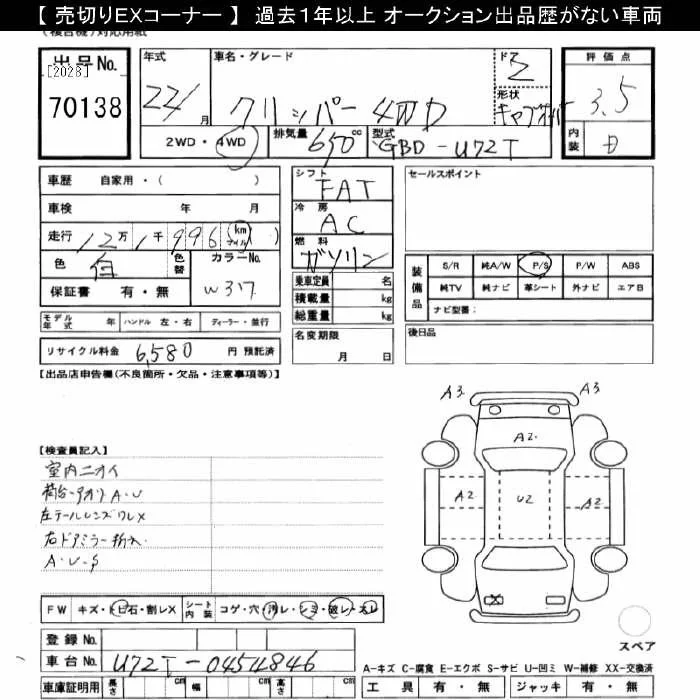 【 売切りEXコーナー 】 過去1年以上 オークション出品歴がない車両
(複合機)対応用紙
出品No.
[2028]
70138
年式
22/
月
車名・グレード
クリッパー 4WD
ドア
2
形状
評価点
3.5
内装
D
2WD・4WD
排気量
650
cc
型式
GBD-U72T
車歴 自家用・( )
車検 年 月
走行 12万 1千 996 km マイル ( )
色 白
色替
カラーNo.
W317
保証書 有・無
シフト
FAT
冷房
AC
燃料
ガソリン
乗車定員 名
積載量 kg
総重量 kg
名変期限
月 日
セールスポイント
装備品
S/R 純A/W P/S P/W ABS
純TV 純ナビ 革シート 外ナビ エアB
ナビ型番:
後日品
モデル年式 年 ハンドル 左・右 ディーラー・並行
リサイクル料金 6,580 円 預託済
【出品店申告欄(不良箇所・欠品・注意事項等)】
【検査員記入】
室内ニオイ
荷台・アオリ A・U
左テールレンズワレX
右ドアミラー折れ
A・U・S
A3
A3
A2
A2
U2
A2
X
FW キズ・トビ石・割レX
シート内装 コゲ・穴・汚レ・シミ・破レ・スレ
登録No.
車台No. U72T-0454846
車庫証明用 長さ cm 幅 cm 高さ cm
スペア
A-キズ C-腐食 E-エクボ S-サビ U-凹ミ W-補修 XX-交換済
工具 有・無 ジャッキ 有・無